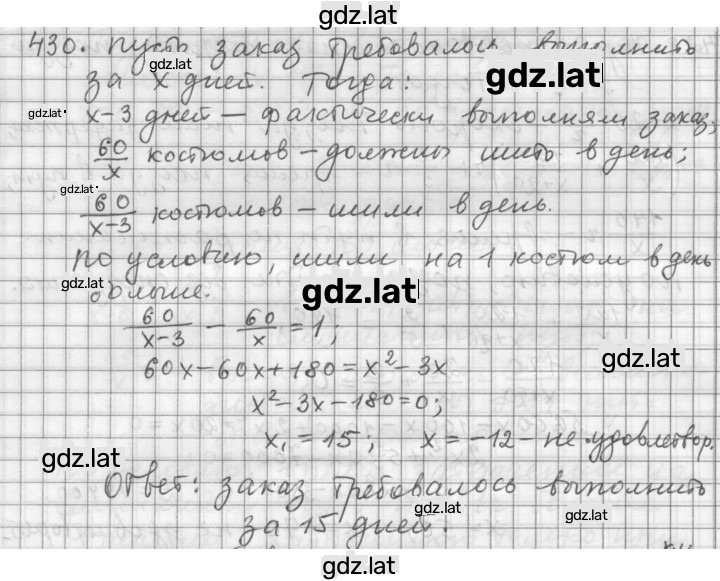 gdz.lat
430. Пусть заказ требовалось выполнить
gdz.lat
за x дней. Тогда:
gdz.lat
gdz.lat
x-3 дней — фактически выполняли заказ;
60/x костюмов — должны шить в день;
gdz.lat
60/(x-3) костюмов — шили в день.
По условию, шили на 1 костюм в день
gdz.lat
больше.
gdz.lat
60/(x-3) - 60/x = 1;
gdz.lat
60x-60x+180=x²-3x
x²-3x-180=0;
x₁=15; x=-12-не удовлетвор.
gdz.lat
Ответ: заказ требовалось выполнить
gdz.lat
за 15 дней.
gdz.lat
gdz.lat